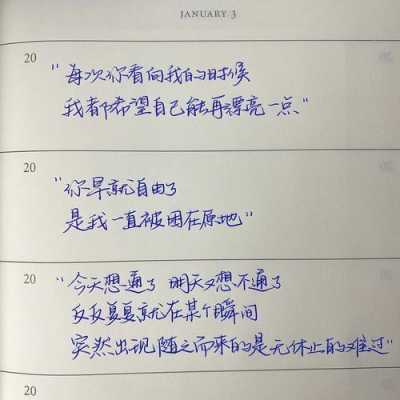 JANUARY/3
20
"每次你看向我的时候
我都希望自己能再漂亮一点"
20
"你早就自由了
是我一直被困在原地"
20
"今天想通了 明天又想不通了
反反复复就在某个瞬间
突然出现随之而来的是无休止的难过"
20